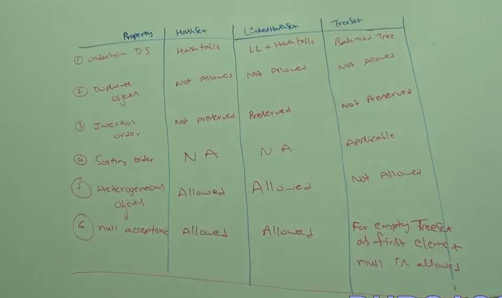 Property HashSet LinkedHashSet TreeSet
① Underlying DS Hashtable LL + Hashtable Balanced Tree
② Duplicate objects Not Allowed Not Allowed Not Allowed
③ Insertion order Not preserved Preserved Not Preserved
④ Sorting order N A N A Applicable
⑤ Heterogeneous objects Allowed Allowed Not Allowed
⑥ null acceptance Allowed Allowed For empty TreeSet
as first element
null is allowed